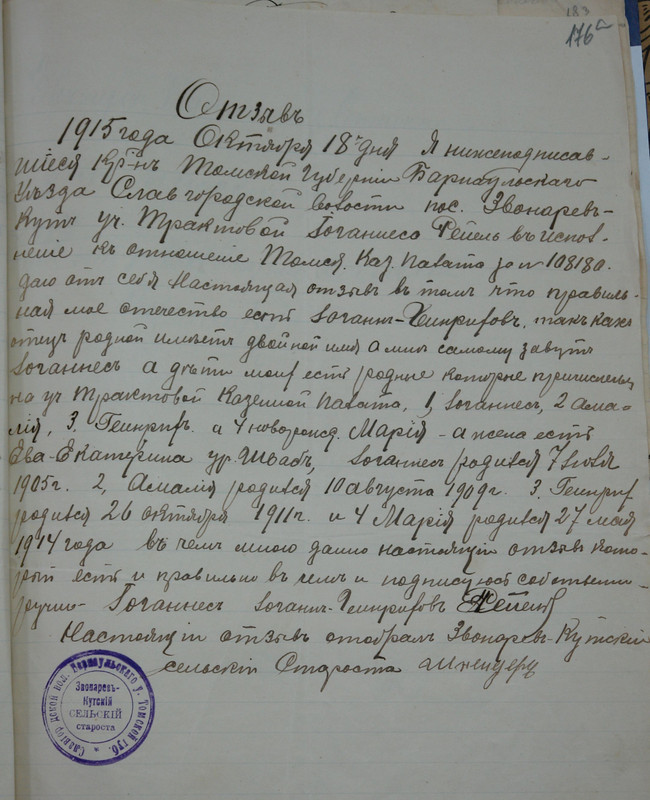 183
176
Отзывъ
1915 года Октября 18 дня Я нижеподписав-
шіеся Кр-нъ Томской Губерніи Барнаульскаго
Уѣзда Славгородской волости пос. Звонаревъ-
Кутъ уч. Трактовой Іоганнесъ Рейель въ испол-
неніе къ отношеніе Томск. Каз. Палата за № 108180.
даю отъ себя Настоящая отзывъ въ томъ что правиль-
ная мое отечество есть Іоганн-Гейнриховъ, такъ какъ
отецъ родной имѣетъ двойной имя а мин самому завутъ
Іоганнесъ а дѣти мои есть родные которые причислены
на уч Трактовой Казеной Палата, 1, Іоганнесъ, 2 Ама-
лія, 3. Геинрих. и 4 новорожд. Марія - а жена есть
Ева-Екатерина ур. Швабъ, Іоганнесъ родился 7 Іюля
1905 г. 2, Амалія родился 10 августа 1909 г. 3. Геинрих
родился 26 октября 1911 г. и 4 Марія родился 27 мая
1914 года въ чемъ мною данно настоящій отзывъ кото-
рый есть и правильно въ чемъ и подписуюсь собственно-
ручно - Іоганнесъ Іоганн-Гейнриховъ
Настоящій отзывъ отобралъ Звонаревъ-Кутскій
сельскій Староста
Славгородской вол. Барнаульскаго у. Томской губ.
Звонаревъ-
Кутскій
СЕЛЬСКІЙ
староста